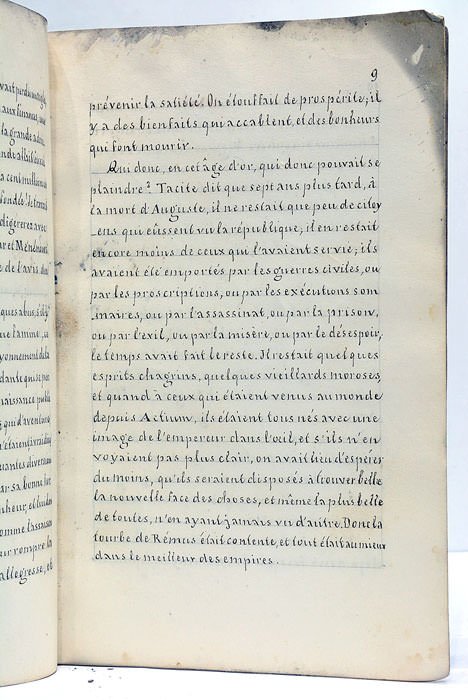 9
prévenir la satiété. On étouffait de prospérité; il
y a des bienfaits qui accablent, et des bonheurs
qui font mourir.
Qui donc, en cet âge d'or, qui donc pouvait se
plaindre? Tacite dit que sept ans plus tard, à
la mort d'Auguste, il ne restait que peu de citoy
_ens qui eussent vu la république; il en restait
encore moins de ceux qui l'avaient servie; ils
avaient été emportés par les guerres civiles, ou
par les proscriptions, ou par les exécutions som
_maires, ou par l'assassinat, ou par la prison,
ou par l'exil, ou par la misère, ou par le désespoir,
le temps avait fait le reste. Il restait quelques
esprits chagrins, quelques vieillards moroses,
et quand à ceux qui étaient venus au monde
depuis Actium, ils étaient tous nés avec une
image de l'empereur dans l'œil, et s'ils n'en
voyaient pas plus clair, on avait lieu d'espérer
du moins, qu'ils seraient disposés à trouver belle
la nouvelle face des choses, et même la plus belle
de toutes, n'en ayant jamais vu d'autre. Donc la
tourbe de Rémus était contente, et tout était au mieux
dans le meilleur des empires.